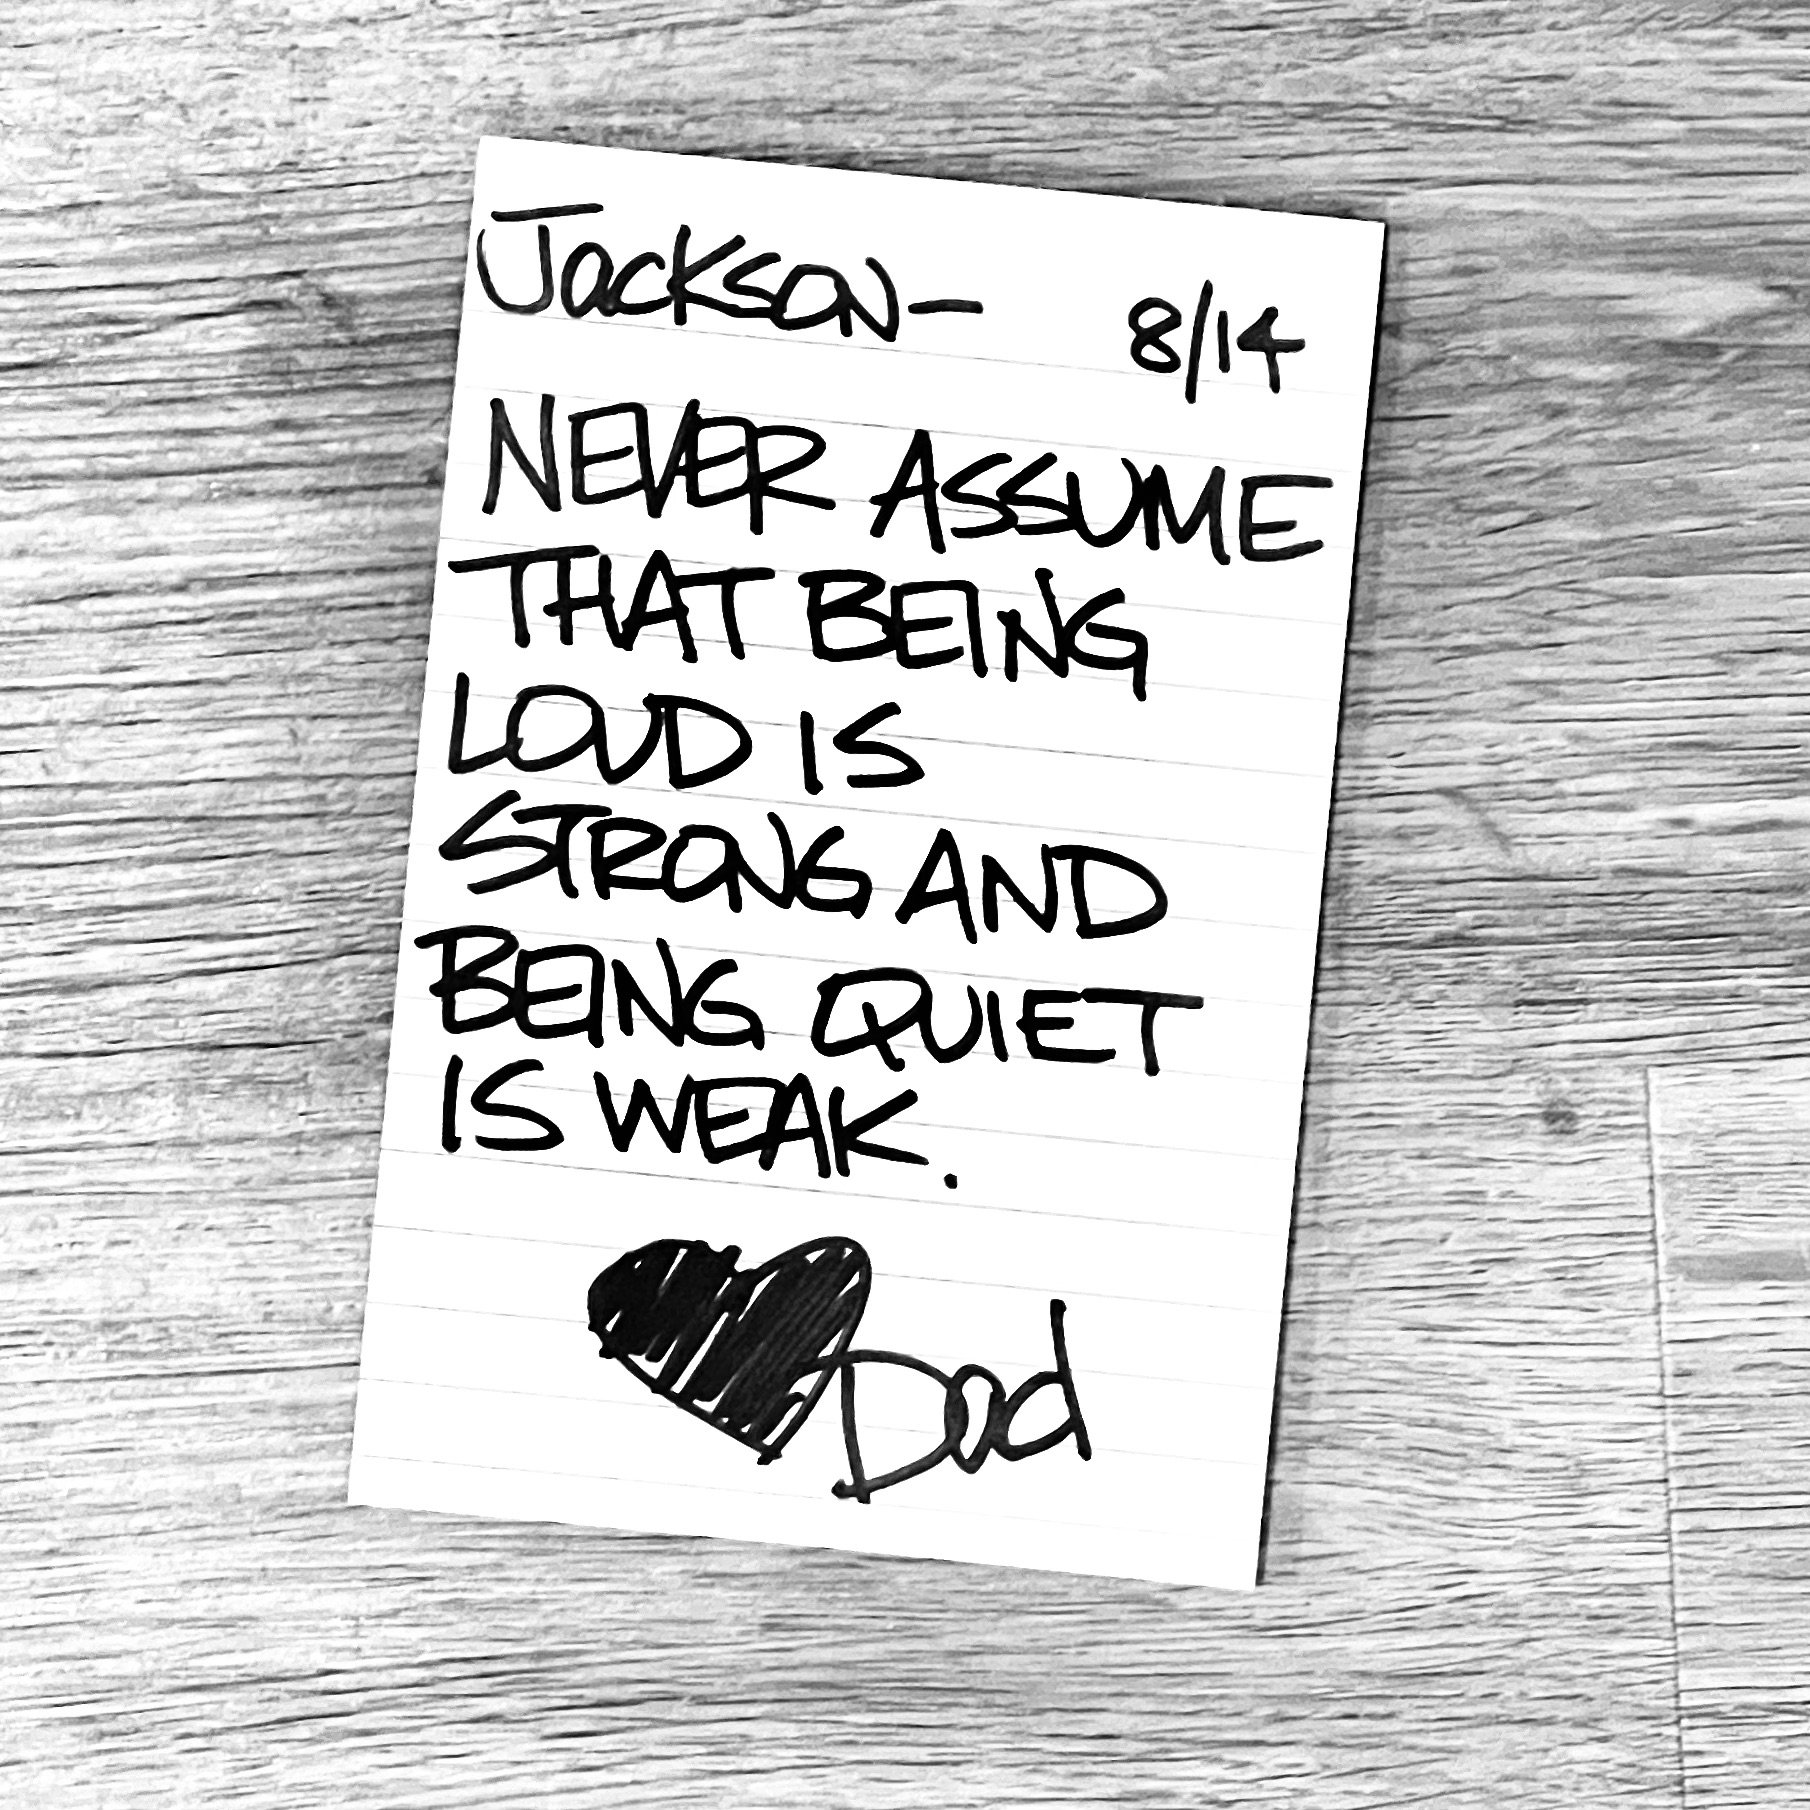 Jackson— 8/14
NEVER ASSUME
THAT BEING
LOUD IS
STRONG AND
BEING QUIET
IS WEAK.
Dad